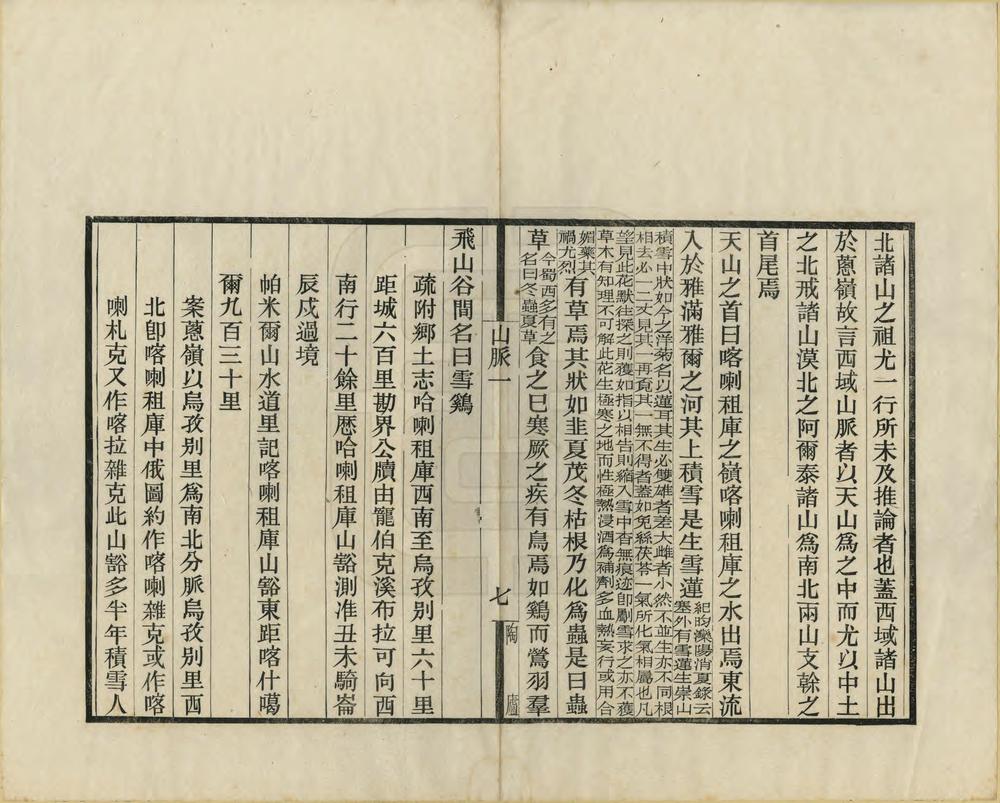 北諸山之祖尤一行所未及推論者也蓋西域諸山出
於蔥嶺故言西域山脈者以天山爲之中而尤以中土
之北戒諸山漠北之阿爾泰諸山爲南北兩山支榦之
首尾焉
天山之首曰喀喇租庫之嶺喀喇租庫之水出焉東流
入於雅滿雅爾之河其上積雪是生雪蓮
紀昀灤陽消夏錄云
塞外有雪蓮生崇山
積雪中狀如今之洋菊名以蓮耳其生必雙雄者差大雌者小然不並生亦不同根
相去必一二丈見其一再覓其一無不得者蓋如兔絲茯苓一氣所化氣相屬也凡
望見此花默往探之則獲如指以相告則縮入雪中杳無痕迹卽劚雪求之亦不獲
草木有知理不可解此花生極寒之地而性極熱浸酒爲補劑多血熱妄行或用合
媚藥其
禍尤烈
有草焉其狀如韭夏茂冬枯根乃化爲蟲是曰蟲
草
今蜀西多有之
名曰冬蟲夏草
食之已寒厥之疾有鳥焉如鷄而鶯羽羣
山脈一
七
陶廬
飛山谷間名曰雪鷄
疏附鄉土志哈喇租庫西南至烏孜别里六十里
距城六百里勘界公牘由寵伯克溪布拉可向西
南行二十餘里歷哈喇租庫山豁測准丑未騎崙
辰戌過境
帕米爾山水道里記喀喇租庫山豁東距喀什噶
爾九百三十里
案蔥嶺以烏孜别里爲南北分脈烏孜别里西
北卽喀喇租庫中俄圖約作喀喇雜克或作喀
喇札克又作喀拉雜克此山豁多半年積雪人